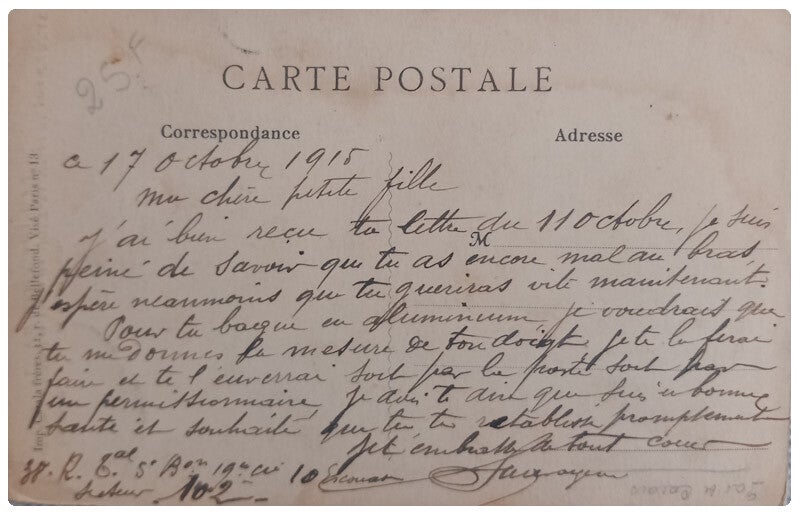 25 f
CARTE POSTALE
Correspondance
Adresse
M
ce 17 Octobre 1915
ma chère petite fille
J'ai bien reçu ta lettre du 11 Octobre, je suis
peiné de savoir que tu as encore mal au bras,
j'espère néanmoins que tu queriras vite maintenant.
Pour ta bague en aluminium je voudrais que
tu me donnes la mesure de ton doigt je te le ferai
faire et te l'enverrai soit par la poste soit par
un permissionnaire, je dois te dire que suis en bonne
santé et souhaite que tu te retablisse promptement
Je t'embrasse de tout coeur
38. R. Eal 5e Bon 19e Cie 10 Escouade
Secteur 102
Visé Paris no 13